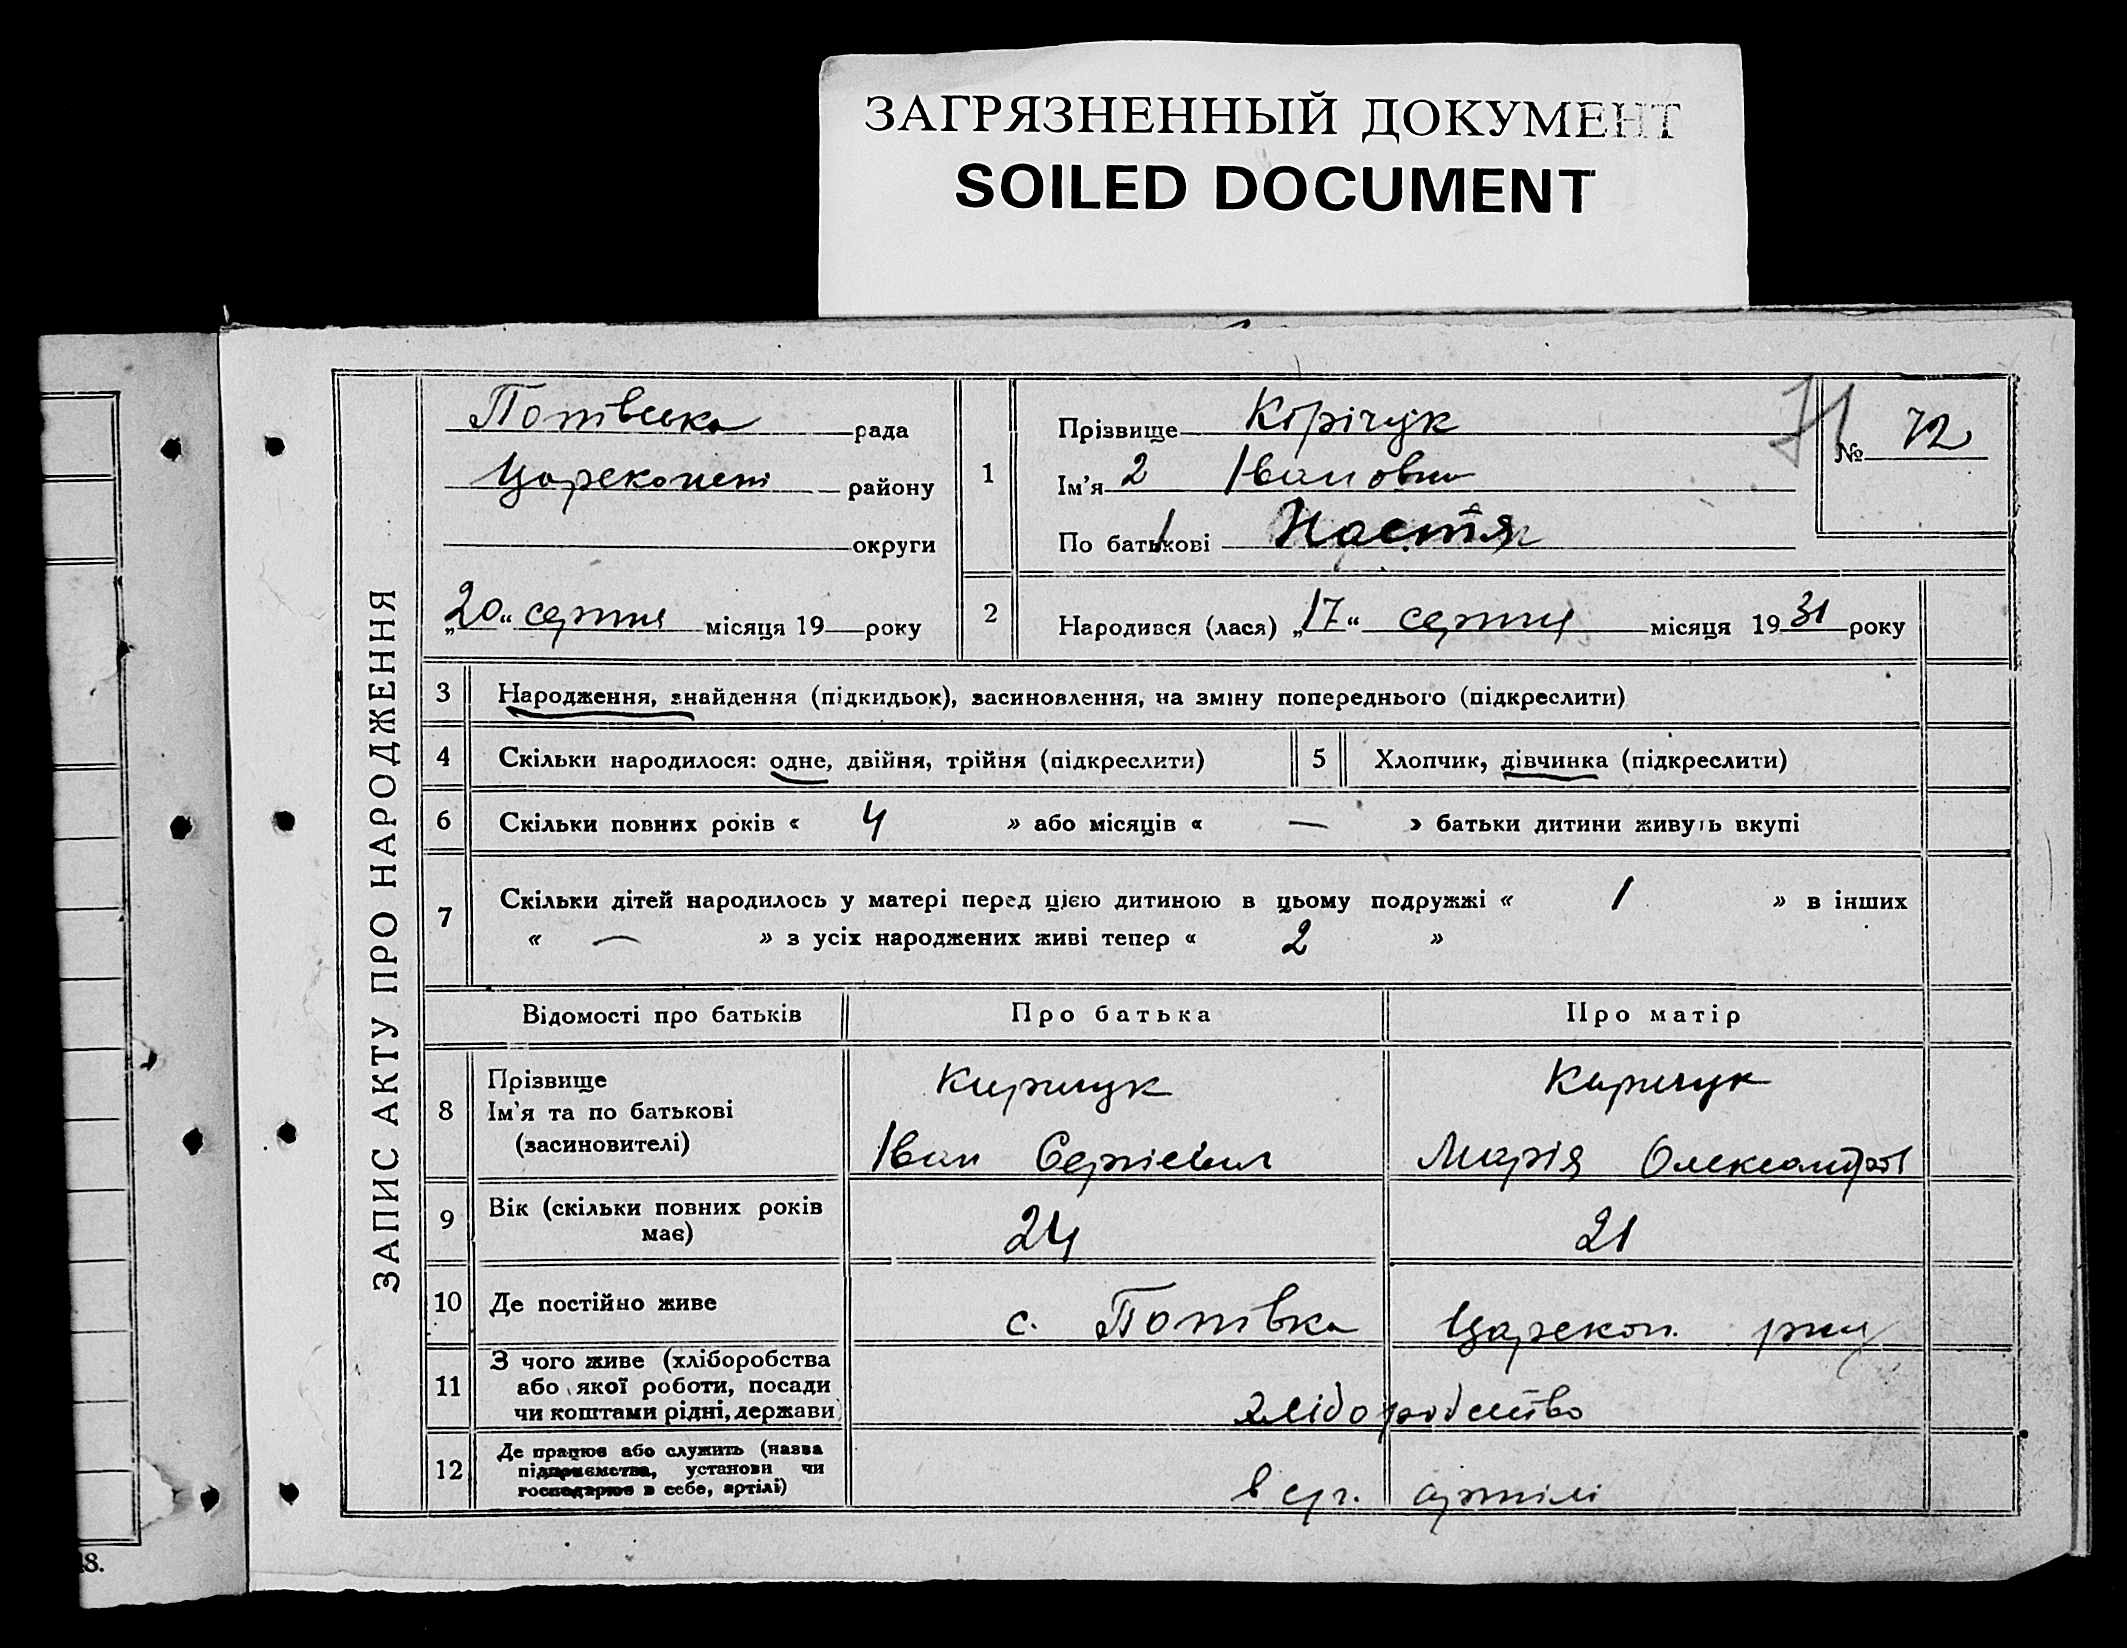 ЗАГРЯЗНЕННЫЙ ДОКУМЕНТ
SOILED DOCUMENT
ЗАПИС АКТУ ПРО НАРОДЖЕННЯ
Потівська рада
району
округи
„20“ серпня місяця 19 року
1
Прізвище Кірічук
Ім'я 2 Івановна
По батькові 1 Настя
71
№ 72
2 Народився (лася) „17“ серпня місяця 1931 року
3 Народження, знайдення (підкидьок), засиновлення, на зміну попереднього (підкреслити)
4 Скільки народилося: одне, двійня, трійня (підкреслити) 5 Хлопчик, дівчинка (підкреслити)
6 Скільки повних років « 4 » або місяців « — » батьки дитини живуть вкупі
7 Скільки дітей народилось у матері перед цією дитиною в цьому подружжі « 1 » в інших
« — » з усіх народжених живі тепер « 2 »
Відомості про батьків Про батька Про матір
8 Прізвище
Ім'я та по батькові
(засиновителі)
Киричук
Іван Сергієвич
Киричук
Марія Олександров
9 Вік (скільки повних років
має)
24 21
10 Де постійно живе с. Потівка Царекон. рну
11 З чого живе (хліборобства
або якої роботи, посади
чи коштами рідні, держави)
хліборобство
12 Де працює або служить (назва
підприємства, установи чи
господарює в себе, артілі)
в с/г. артілі
48.